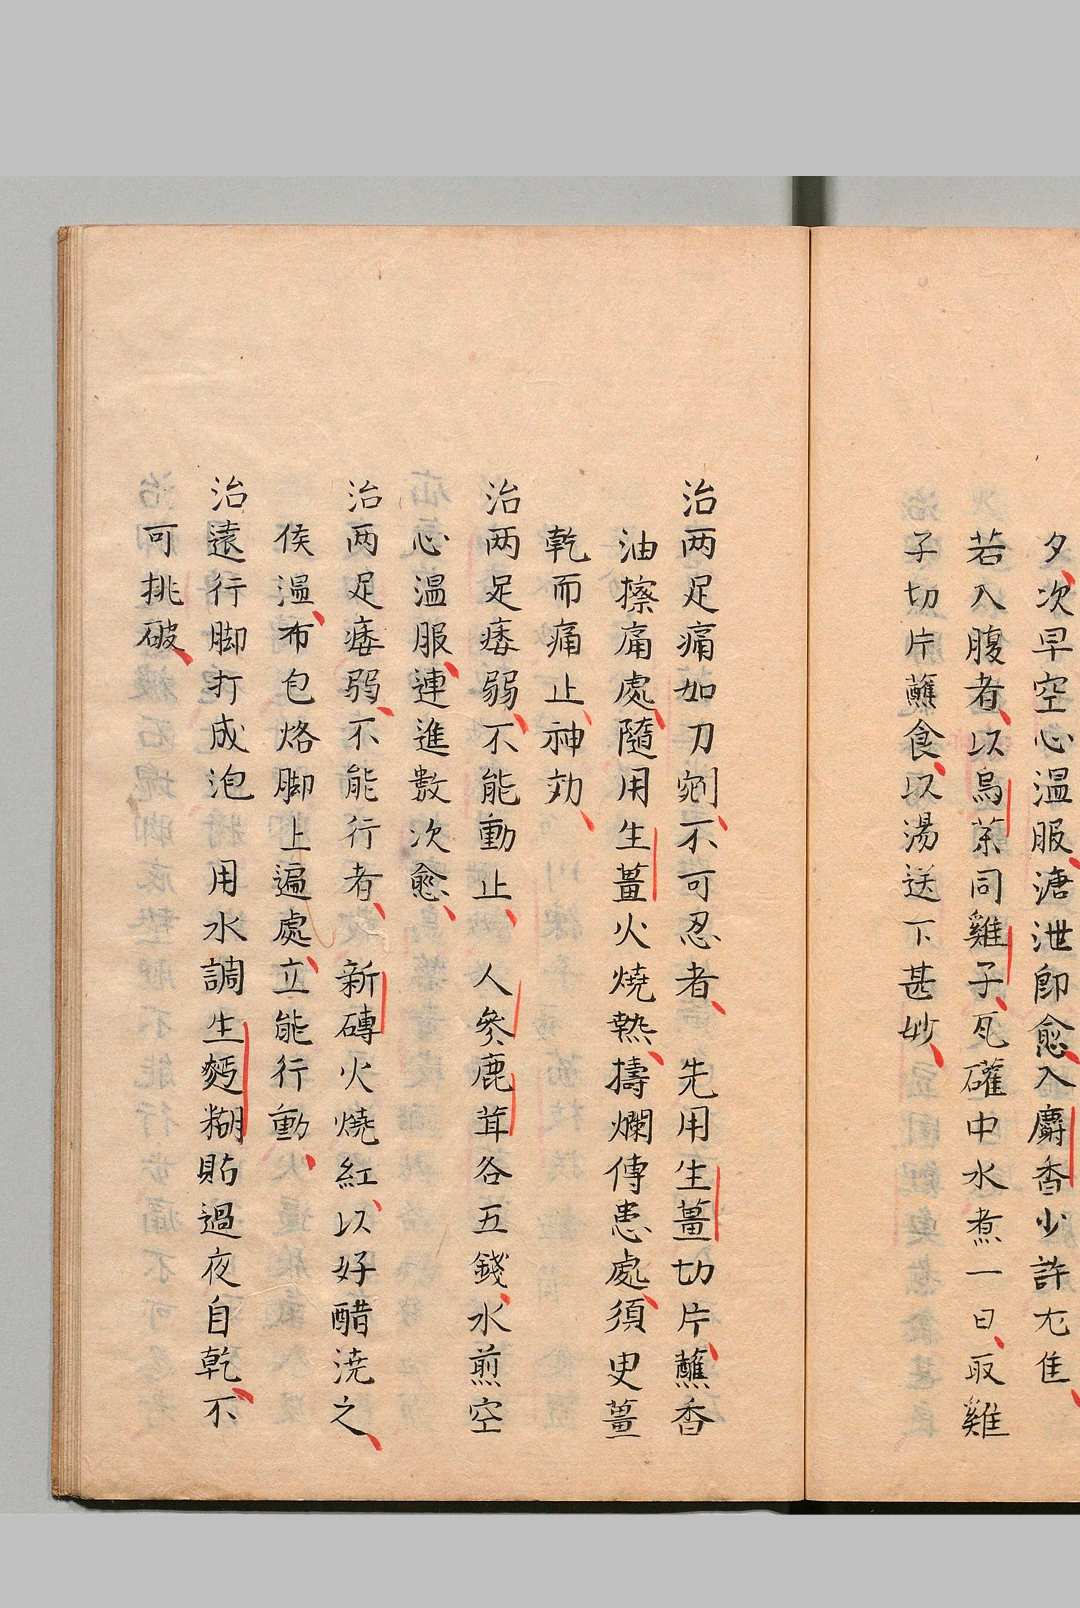 夕次早空心温服溏泄即愈入麝香少許尢隹
若入腹者以烏茶同雞子瓦確中水煮一日取雞
子切片蘸食以湯送下甚妙
治两足痛如刀剜不可忍者 先用生薑切片蘸香
油擦痛處隨用生薑火燒熱擣爛傅患處須臾薑
乾而痛止神効
治两足痿弱不能動止 人參鹿茸各五錢水煎空
心温服連進數次愈
治两足痿弱不能行者 新磚火燒紅以好醋澆之
侯温布包烙脚上遍處立能行動
治遠行脚打成泡 用水調生麪糊貼過夜自乾不
可挑破